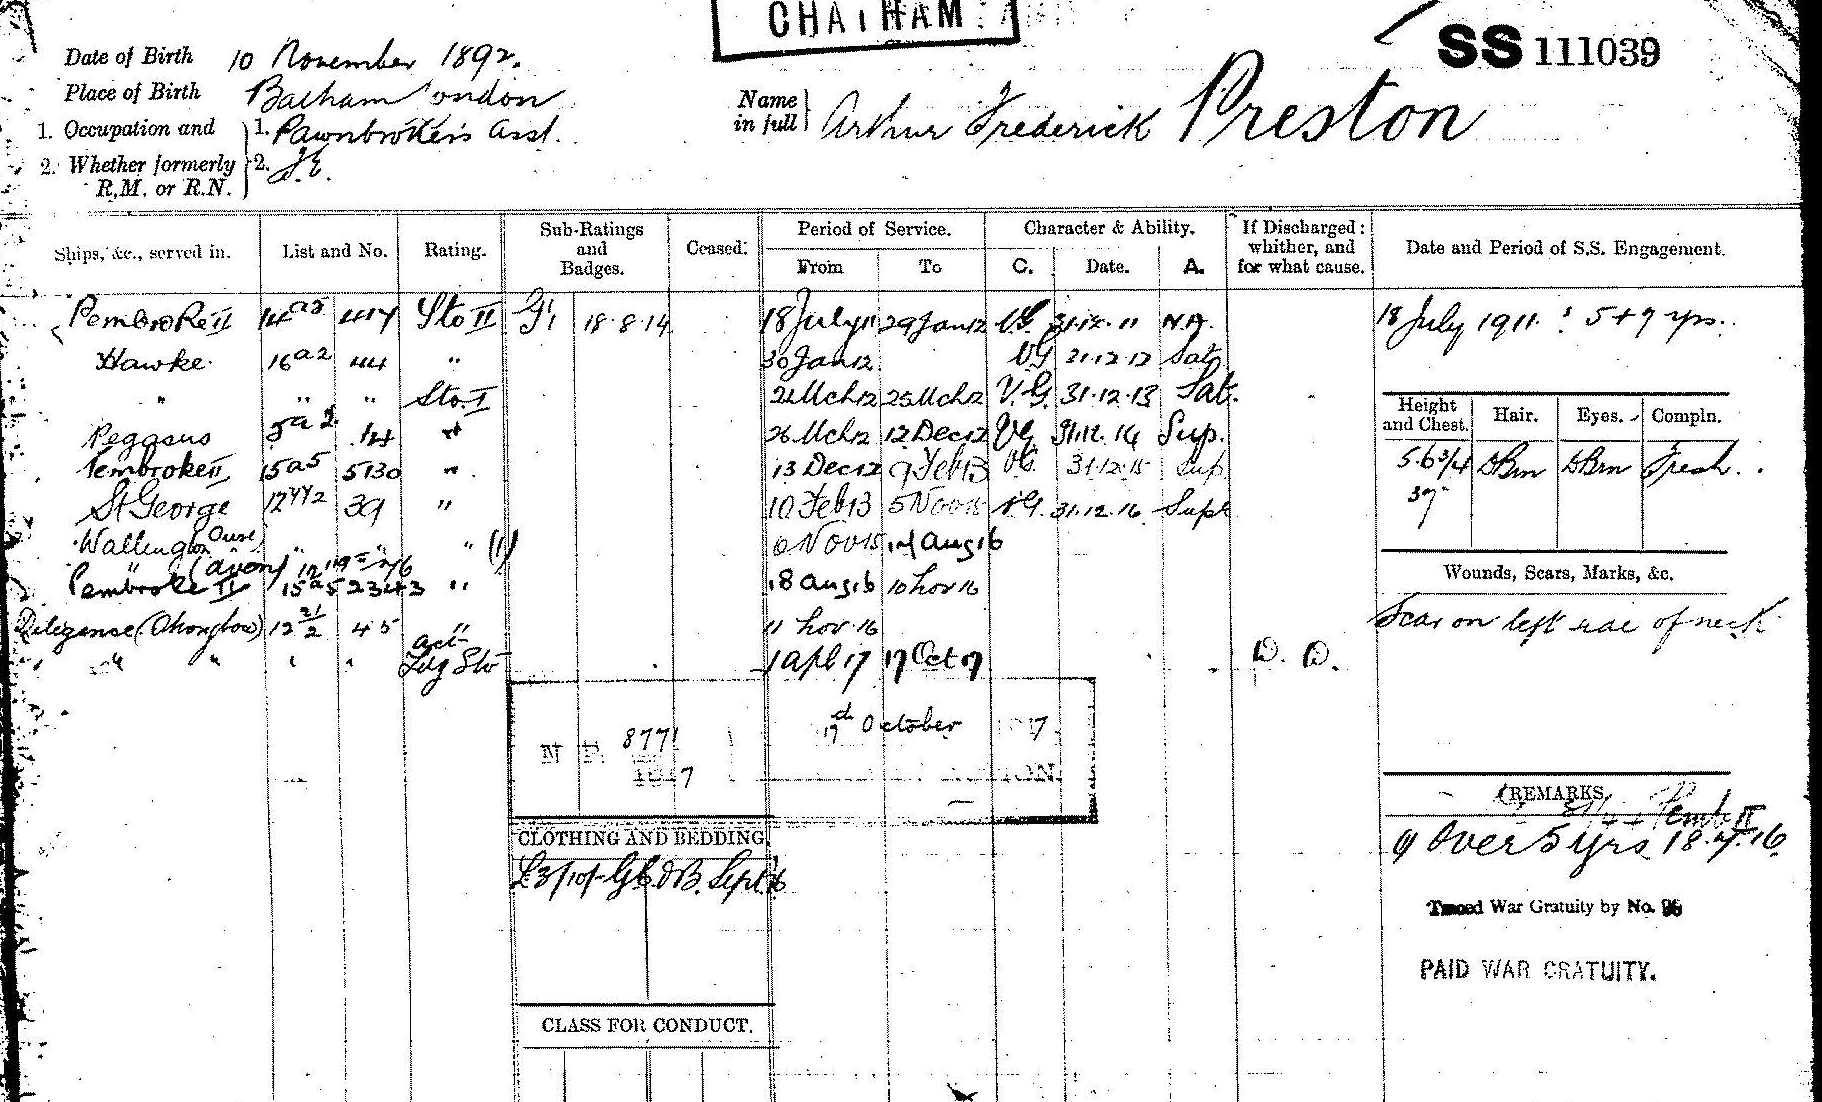 CHATHAM
SS 111039
Date of Birth 10 November 1892.
Place of Birth Balham London
Name in full Arthur Frederick Preston
1. Occupation and 1. Pawnbroker's Asst.
2. Whether formerly R.M. or R.N. 2. J.E.
Ships, &c., served in. List and No. Rating. Sub-Ratings and Badges. Ceased. Period of Service. From To Character & Ability. C. Date. A. If Discharged: whither, and for what cause. Date and Period of S.S. Engagement.
Pembroke II 14a5 417 Sto II G1 18.8.14 18 July 11 29 Jan 12 VG 31.12.11 N.A. 18 July 1911 : 5+7 yrs.
Hawke 16a2 44 " 30 Jan 12 VG 31.12.12 Sat
" " " Sto I Mch 12 25 Mch 12 V.G. 31.12.13 Sat.
Pegasus 5a2 14 " 26 Mch 12 12 Dec 12 VG 31.12.14 Sup.
Pembroke II 15a5 5130 " 13 Dec 12 9 Feb 13 VG 31.12.15 Sup
St George 39 " 10 Feb 13 5 Nov 15 VG. 31.12.16 Supr
Wallington (Ouse) " " " (1) 6 Nov 15 Aug 16
" (Avon)
Pembroke II 15a5 2343 " 18 Aug 16 10 Nov 16
Diligence ( ) 12 2/2 45 " 11 Nov 16
" " " " Act Ldg Sto 1 Apl 17 17 Oct 17 D.D.
Height and Chest. Hair. Eyes. Compln.
5.6¾ DBrn DBrn Fresh.
37
Wounds, Scars, Marks, &c.
Scar on left side of neck
N P 8771 1917 17th October 17 ACTION.
REMARKS.
Pemb II
Over 5 yrs 18.7.16.
CLOTHING AND BEDDING
£3/10/- Sept 16
Traced War Gratuity by No.
PAID WAR GRATUITY.
CLASS FOR CONDUCT.